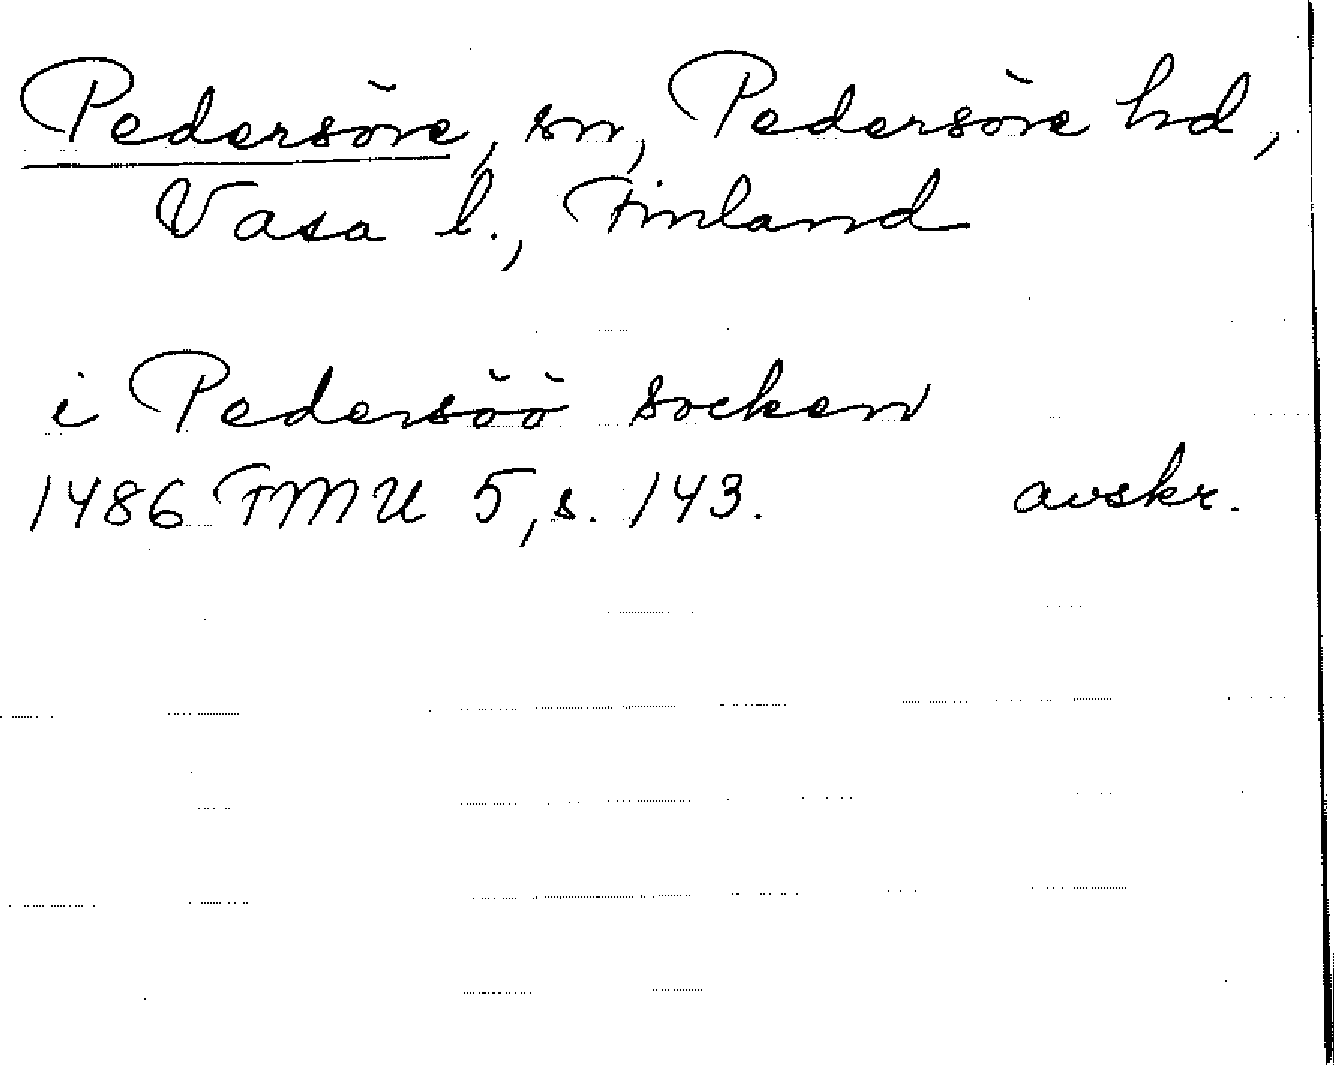 Pedersöre, sn, Pedersöre hd,
Vasa l., Finland
i Pedersöö socken
1486 FMU 5, s. 143. avskr.